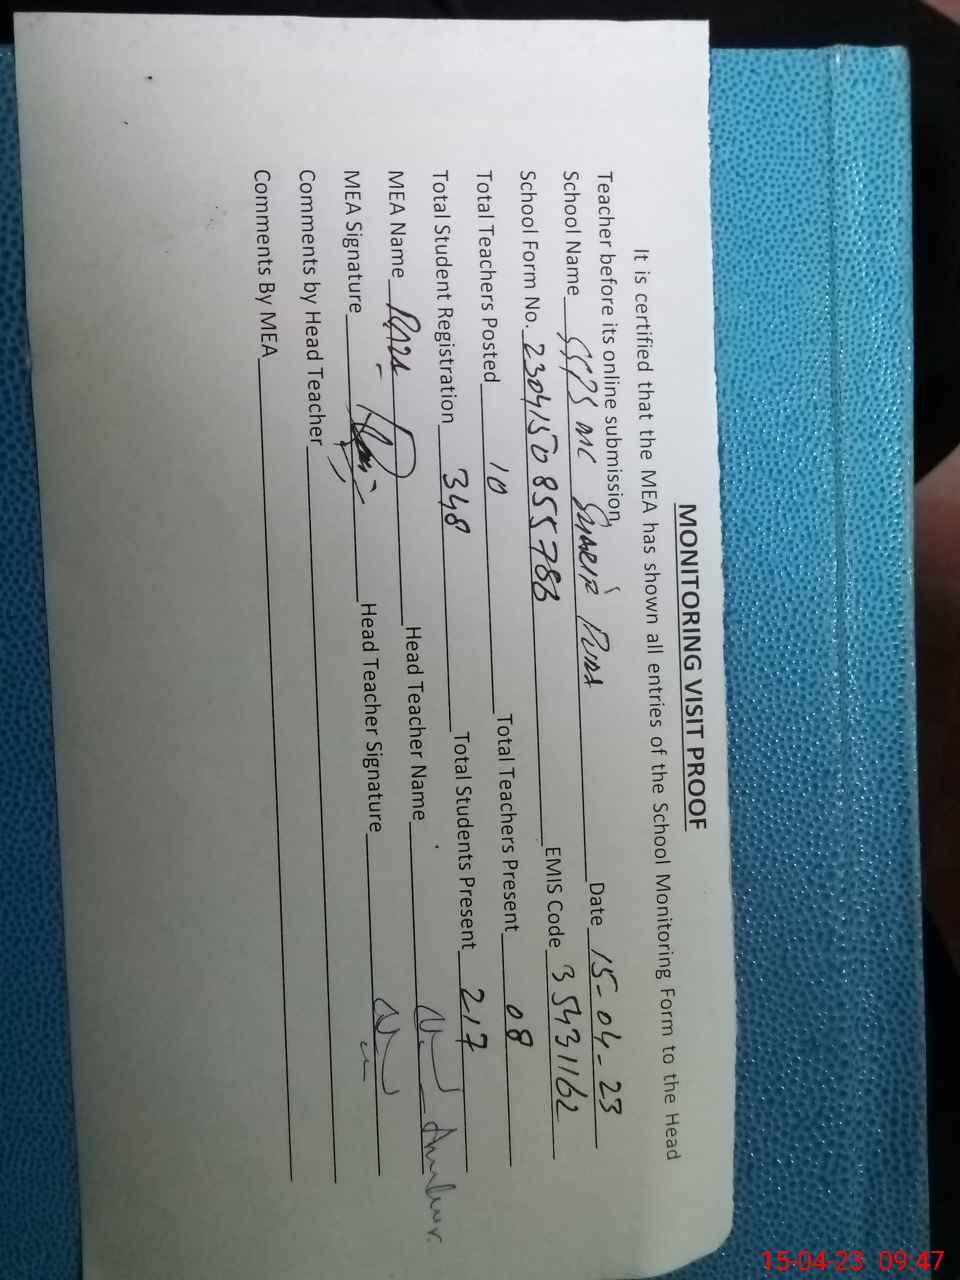 MONITORING VISIT PROOF
It is certified that the MEA has shown all entries of the School Monitoring Form to the Head
Teacher before its online submission.
School Name MC Date 15-04-23
School Form No. 230415085578 EMIS Code 35431162
Total Teachers Posted 10 Total Teachers Present 08
Total Student Registration 348 Total Students Present 217
MEA Name Head Teacher Name
MEA Signature Head Teacher Signature
Comments by Head Teacher
Comments By MEA
15-04-23 09:47